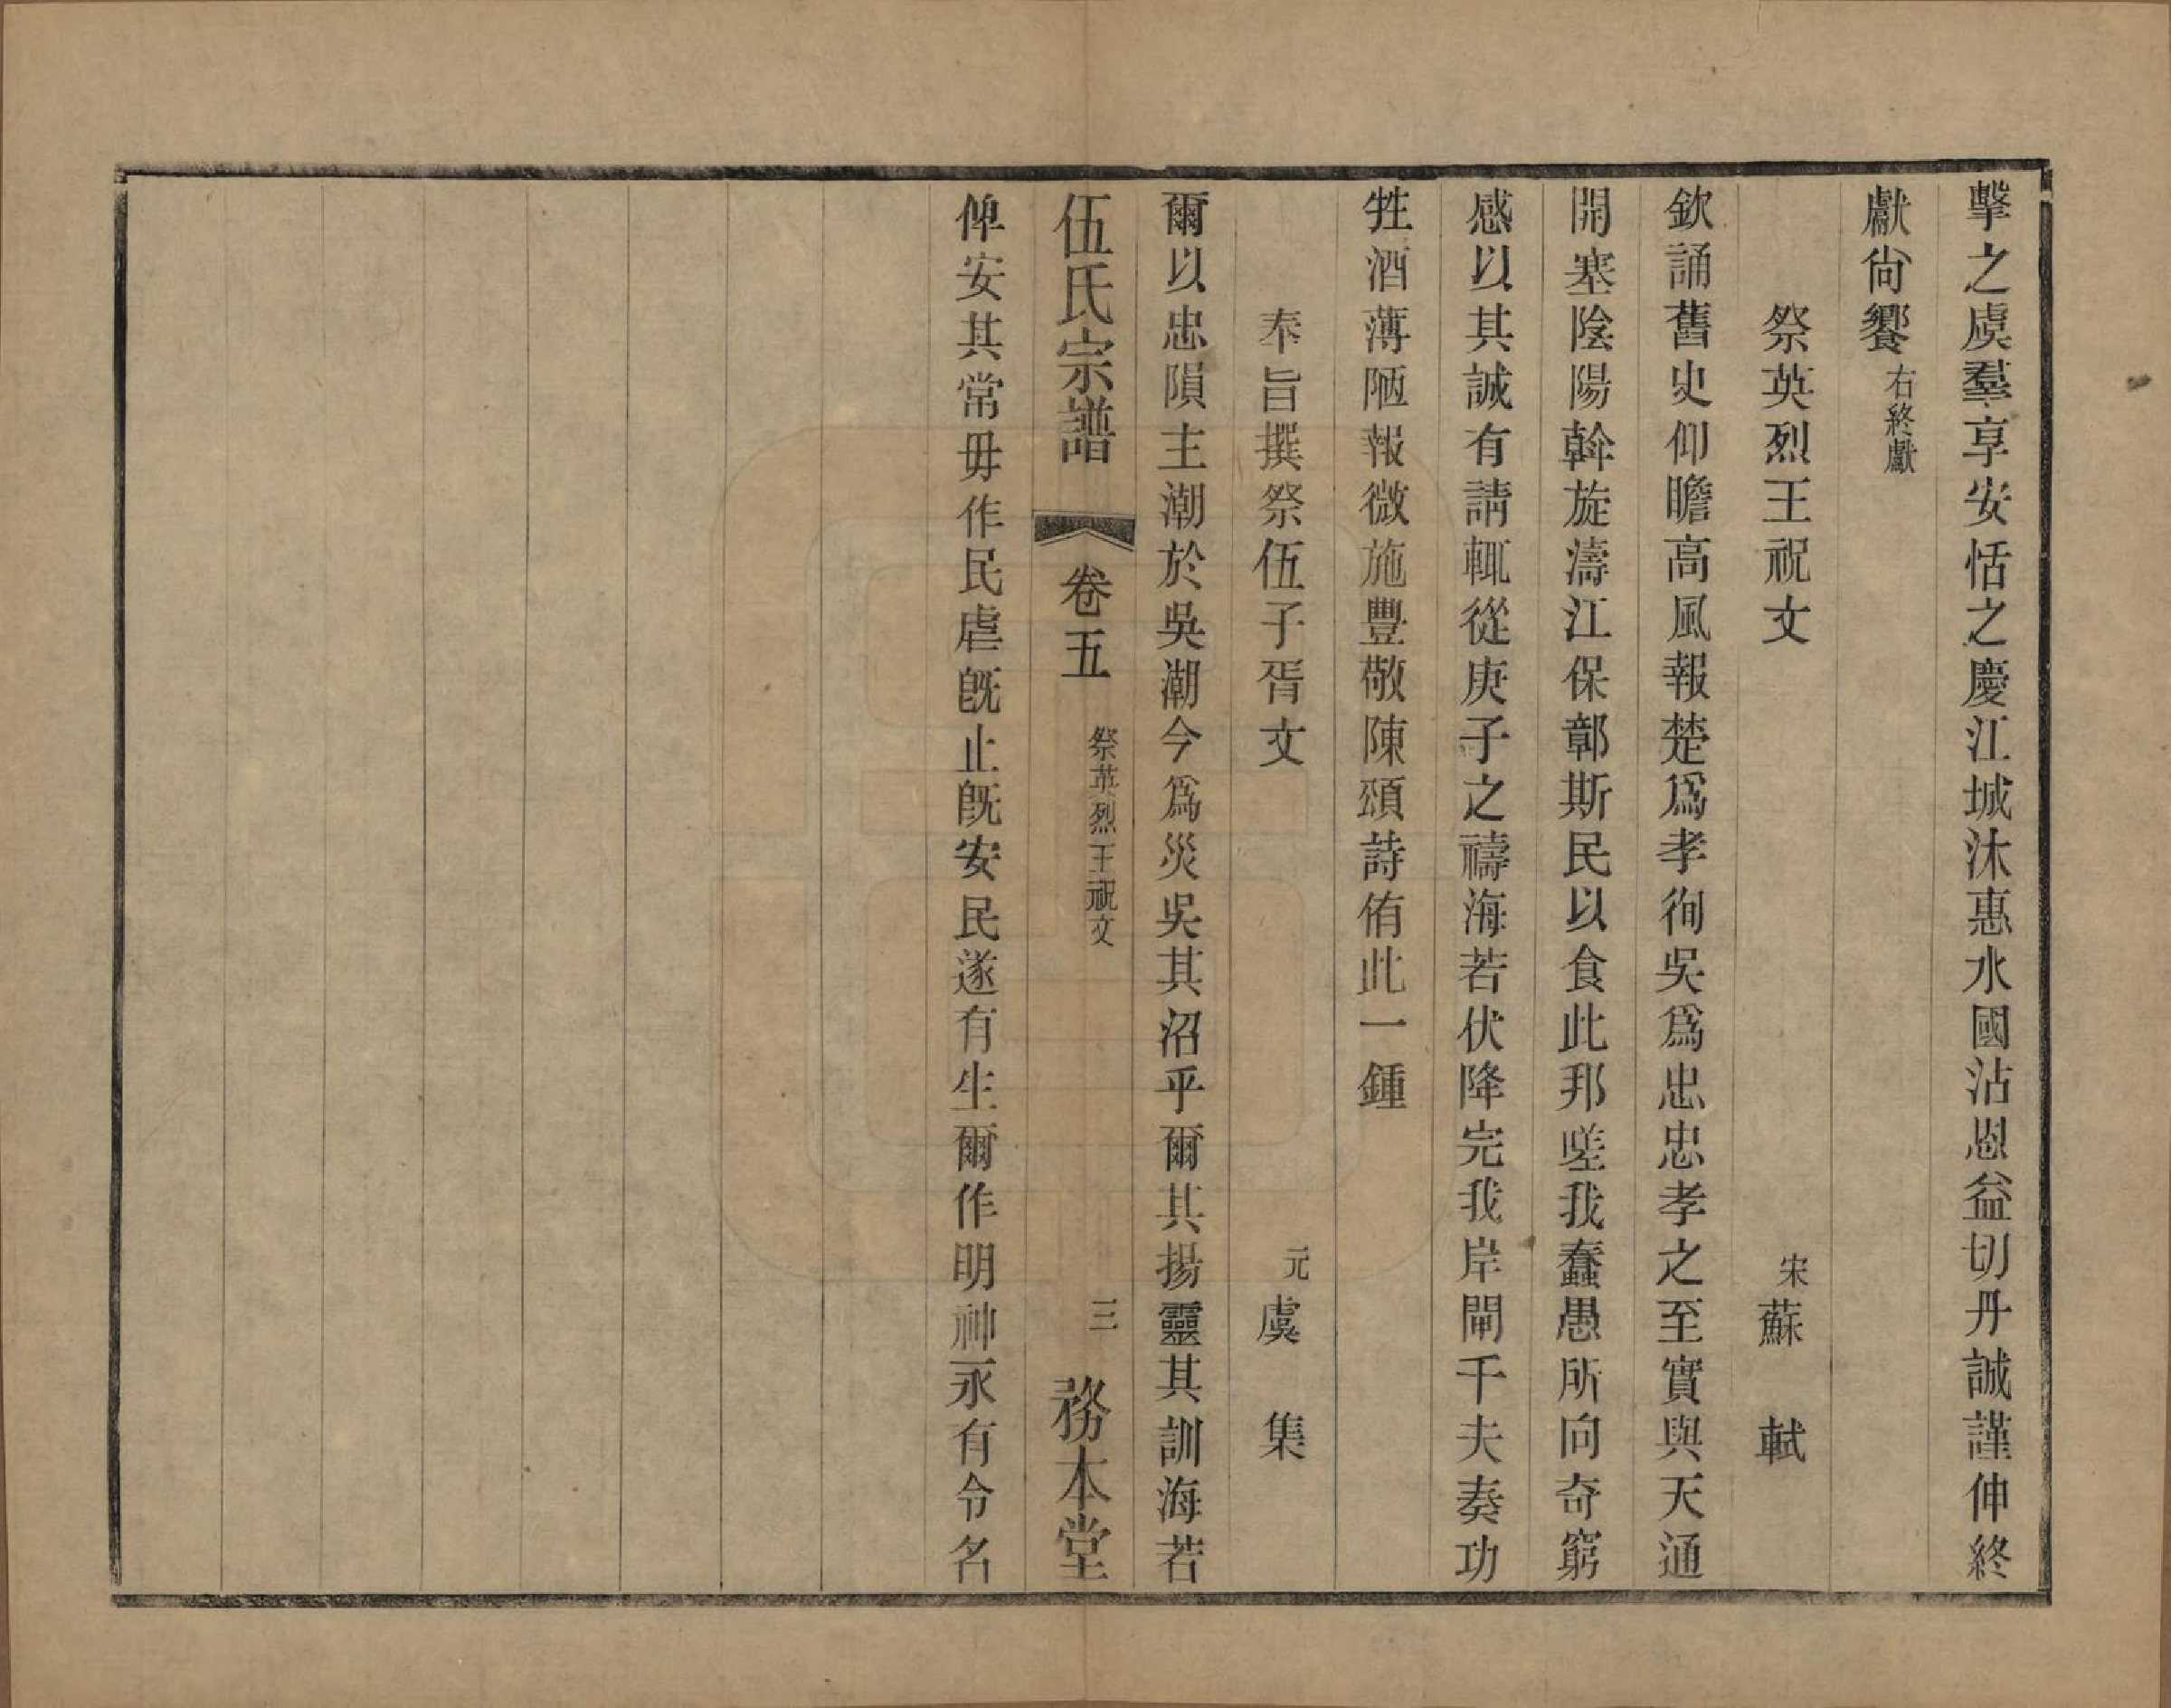 擊之虞羣享安恬之慶江城沐惠水國沾恩益切丹誠謹伸終
獻尙饗右終獻
祭英烈王祝文 宋蘇軾
欽誦舊史仰瞻高風報楚爲孝徇吳爲忠忠孝之至實與天通
開塞陰陽斡旋濤江保鄣斯民以食此邦嗟我蠢愚所向奇窮
感以其誠有請輒從庚子之禱海若伏降完我岸閘千夫奏功
牲酒薄陋報微施豐敬陳頌詩侑此一鍾
奉旨撰祭伍子胥文 元虞集
爾以忠隕主潮於吳潮今爲災吳其沼乎爾其揚靈其訓海若
伍氏宗譜 卷五 祭英烈王祝文 三 務本堂
俾安其常毋作民虐旣止旣安民遂有生爾作明神永有令名